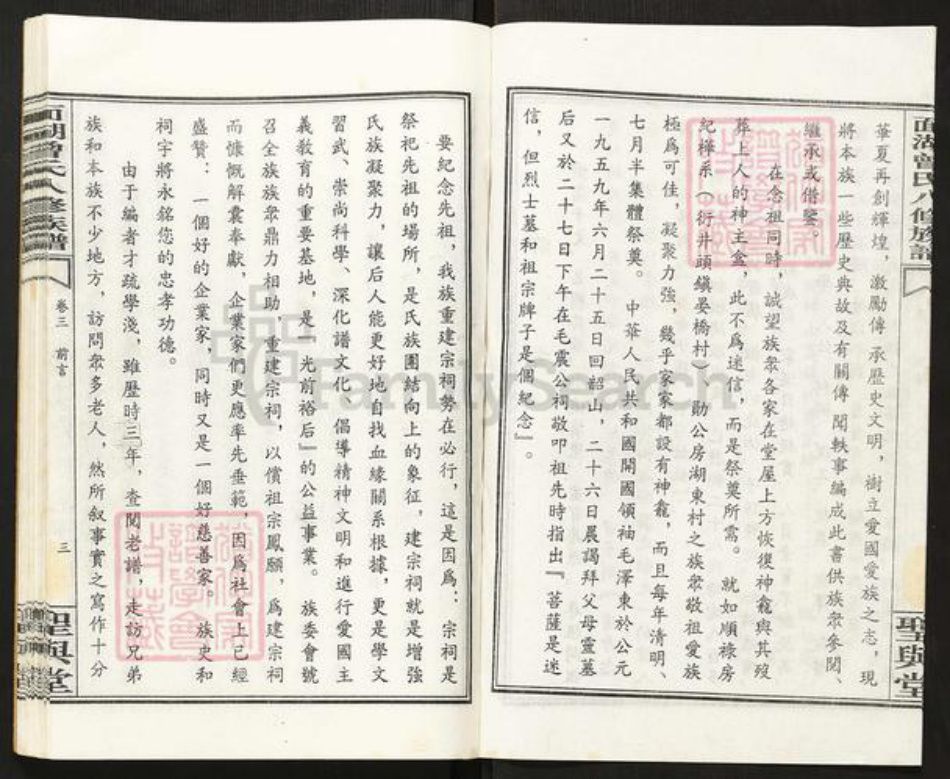 面湖曾氏八修族譜
聖與堂
華夏再創輝煌，激勵傳承歷史文明，樹立愛國愛族之志，現
將本族一些歷史典故及有關傳聞軼事編成此書供族衆參閱、
繼承或借鑒。
在念祖同時，誠望族衆各家在堂屋上方恢復神龕與其歿
葬上人的神主盒，此不爲迷信，而是祭奠所需。就如順祿房
紀樺系（衍井頭鎮晏橋村）勛公房湖東村之族衆敬祖愛族
極爲可佳，凝聚力強，幾乎家家都設有神龕，而且每年清明、
七月半集體祭奠。中華人民共和國開國領袖毛澤東於公元
一九五九年六月二十五日回韶山，二十六日晨謁拜父母靈墓
后又於二十七日下午在毛震公祠敬叩祖先時指出『菩薩是迷
信，但烈士墓和祖宗牌子是個紀念』。
要紀念先祖，我族重建宗祠勢在必行，這是因爲：宗祠是
祭祀先祖的場所，是氏族團結向上的象征，建宗祠就是增強
氏族凝聚力，讓后人能更好地自找血緣關系根據，更是學文
習武、崇尚科學、深化譜文化、倡導精神文明和進行愛國主
義教育的重要基地，是『光前裕后』的公益事業。族委會號
召全族族衆鼎力相助，重建宗祠，以償祖宗夙願，爲建宗祠
而慷慨解囊奉獻，企業家們更應率先垂範，因爲社會上已經
盛贊：一個好的企業家，同時又是一個好慈善家。族史和
祠宇將永銘您的忠孝功德。
由于編者才疏學淺，雖歷時三年，查閱老譜，走訪兄弟
族和本族不少地方，訪問衆多老人，然所叙事實之寫作十分
面湖曾氏八修族譜
卷三 前言
三
聖與堂
FamilySearch